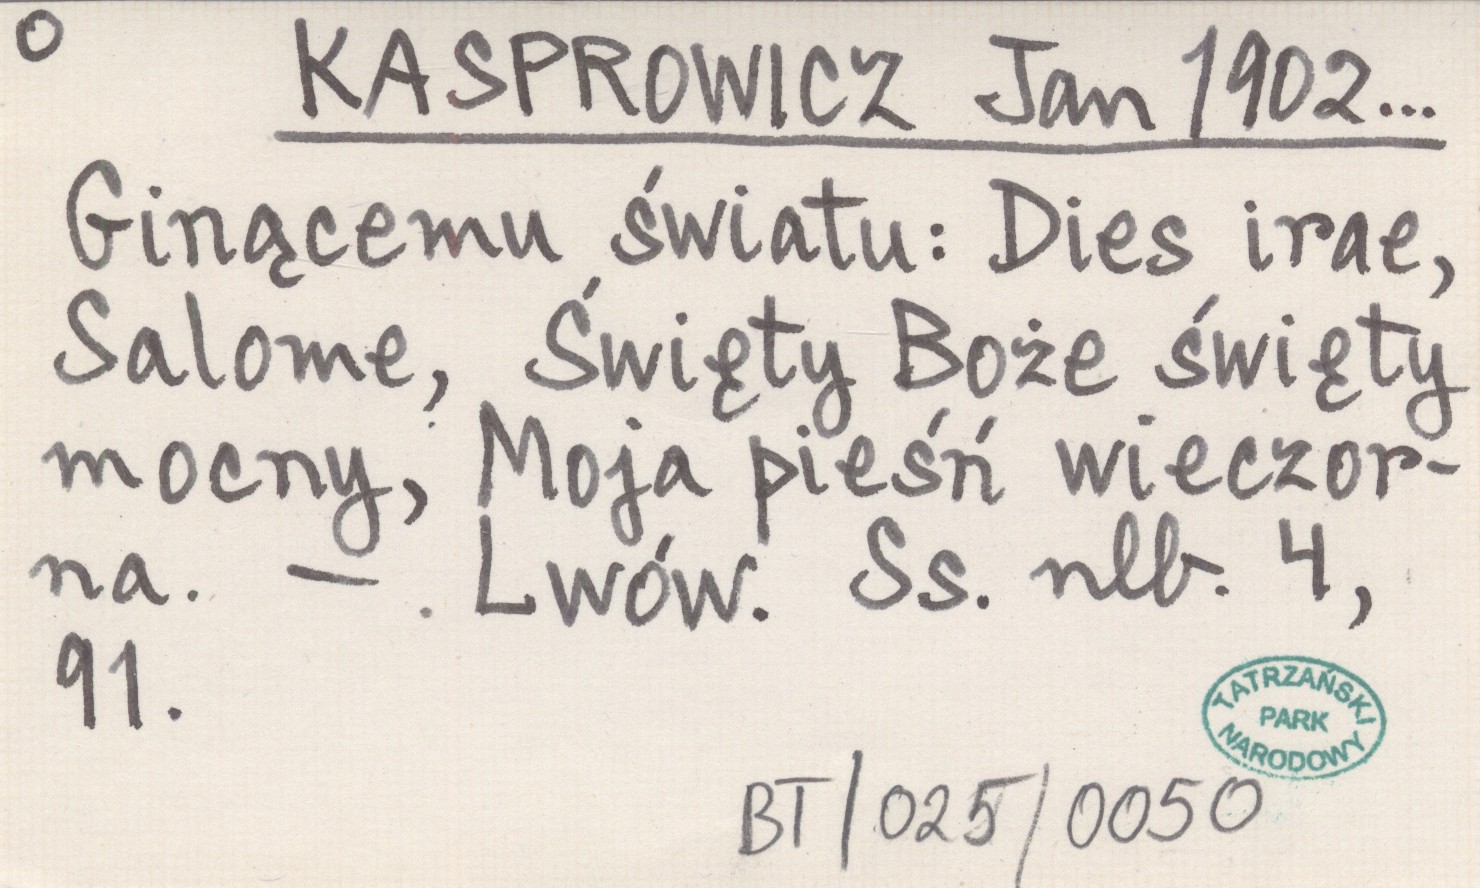 O
KASPROWICZ Jan 1902...
Ginącemu światu: Dies irae,
Salome, Święty Boże święty
mocny, Moja pieśń wieczor-
na. — . Lwów. Ss. nlb. 4,
91.
TATRZAŃSKI
PARK
NARODOWY
BT/025/0050